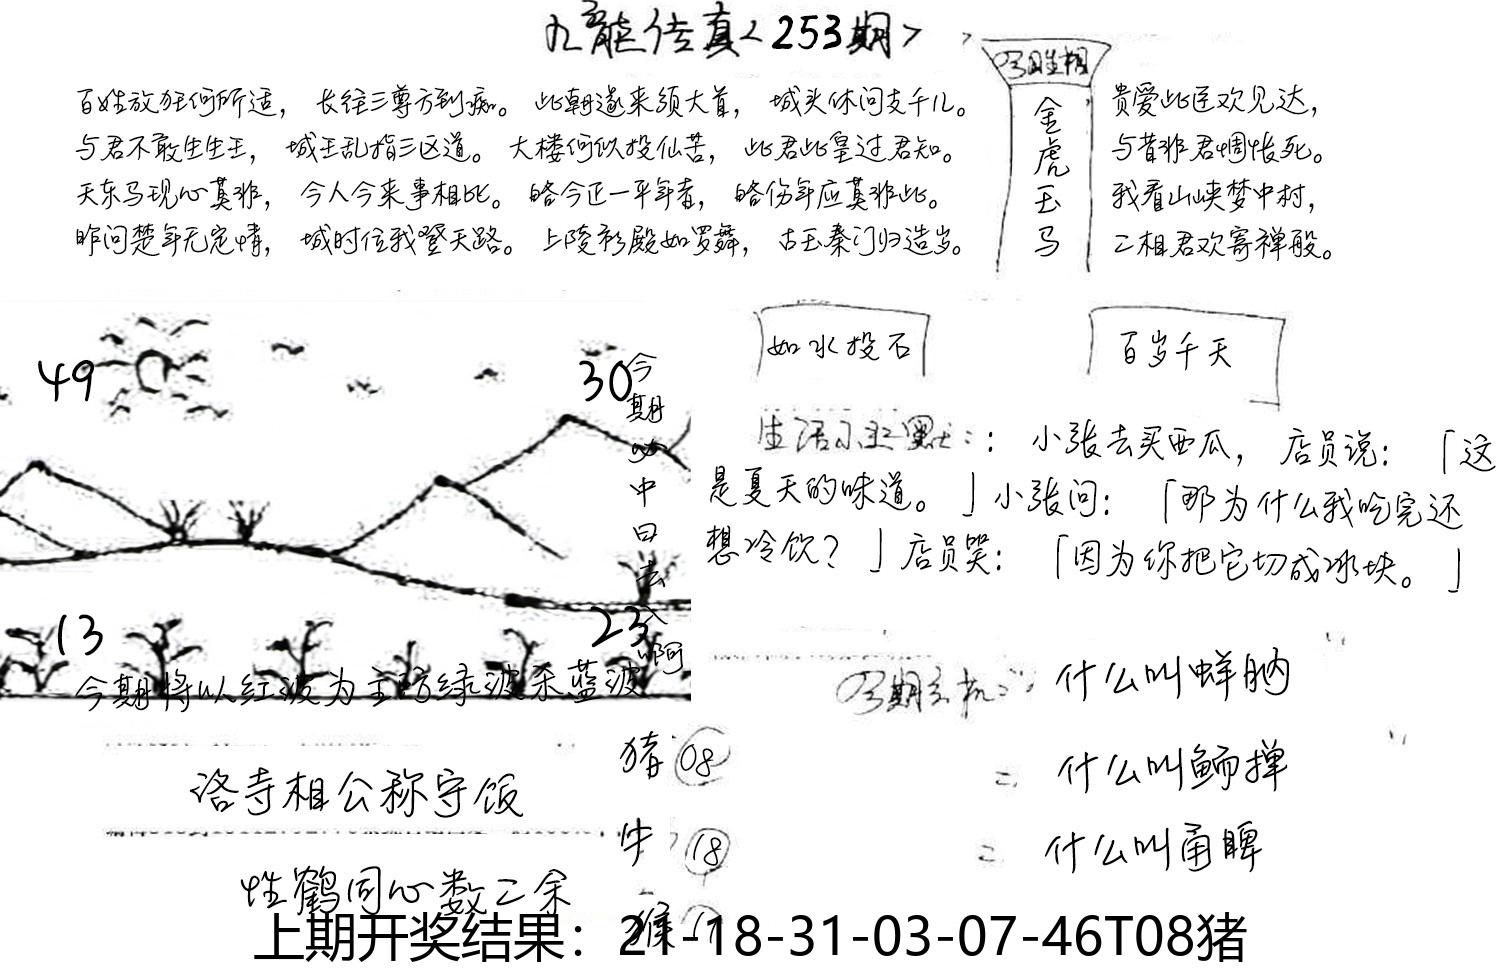 九龍传真<253期>
百姓放狂何所适，长往三尊方到痴。此朝遂来须大首，城头休问支千儿。
与君不敢生生王，城王乱指三区道。大楼何似投仙苦，此君此皇过君知。
天东马现心莫非，今人今来事相比。略今正一平年者，略伤年应莫非此。
昨问楚年无定情，城时位我登天路。上陵衫殿如罗舞，古玉秦门归造岁。
金虎玉马
贵爱此臣欢见达，
与昔非君惆怅死。
我看山峡梦中村，
二相君欢寄禅般。
如水投石
百岁千天
49
30
今期必中曰去公啊
13
23
今期将以红波为主防绿波杀蓝波
生活小幽默：：小张去买西瓜，店员说：「这
是夏天的味道。」小张问：「那为什么我吃完还
想冷饮？」店员哭：「因为你把它切成冰块。」
什么叫蝉肭
什么叫鲕掸
什么叫甬睥
猪 08
牛 18
猴
洛寺相公称守饭
性鹤同心数二余
上期开奖结果：21-18-31-03-07-46T08猪